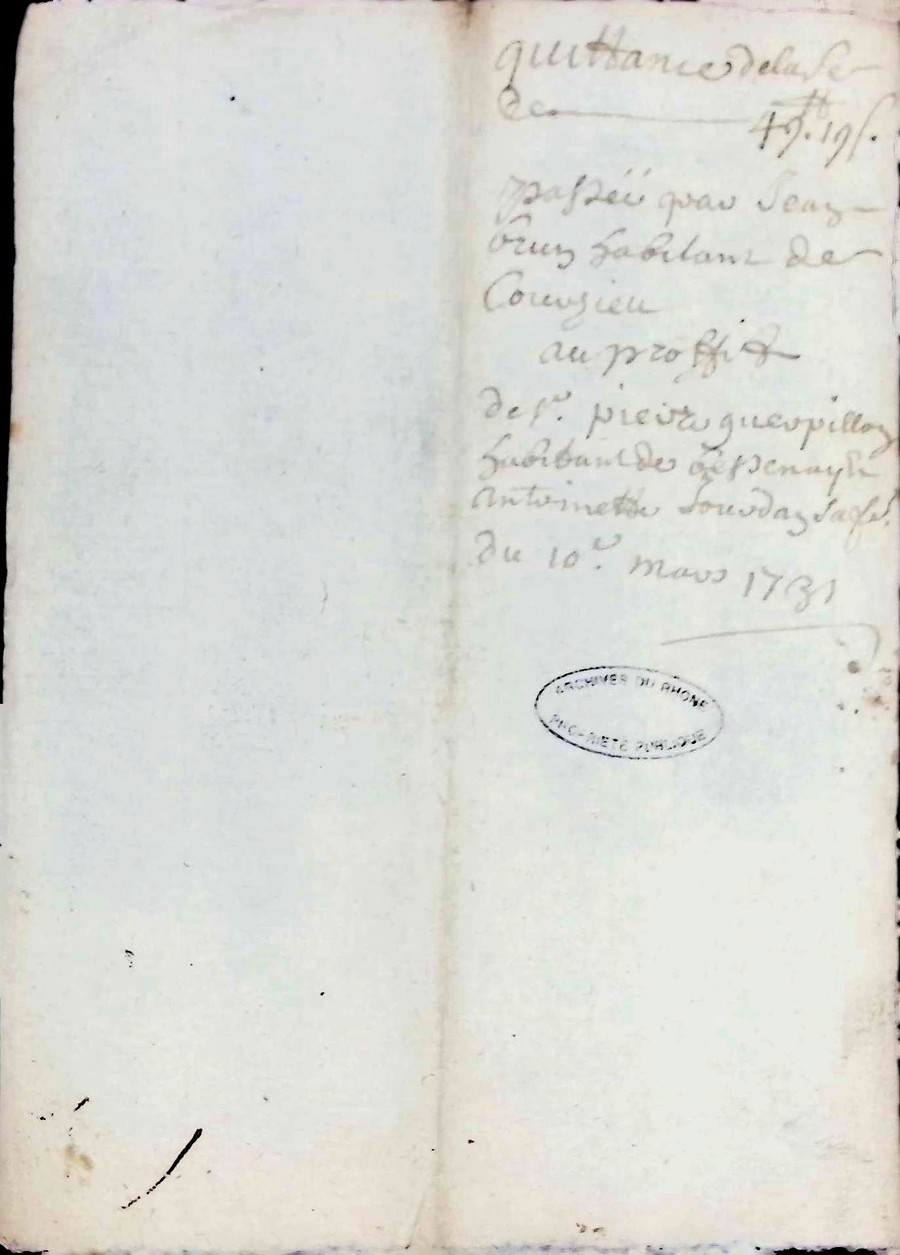 quittance de la Se
de 49.# 19 s.
passéé par Jean
brun habitant de
Courzieu
au proffitt
de sr. pierre guerpillon
habitant de bessenay &
antoinette Jourdan sa fe.
du 10e. mars 1731
ARCHIVES DU RHONE
PROPRIETE PUBLIQUE